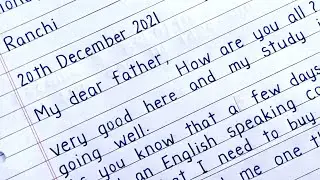 Ranchi
20th December 2021
My dear father,
How are you all?
very good here and my study i
going well.
you know that a few days
an English speaking co
I need to buy
me one th